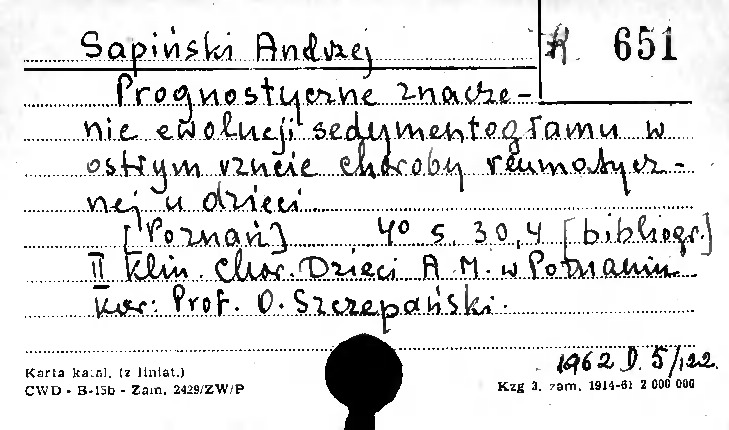 Sapiński Andrzej
R 651
Prognostyczne znacze-
nie ewolucji sedymentogramu w
ostrym rzucie choroby reumatycz-
nej u dzieci
[Poznań] 4° s. 30,4 [bibliogr.]
II Klin. Chor. Dzieci A.M. w Poznaniu
Kier: Prof. O. Szczepański.
1962 D. 5/122.
Karta katal. (z liniat.)
CWD - B-15b - Zam. 2429/ZW/P
Kzg 3. zam. 1914-61 2 000 000